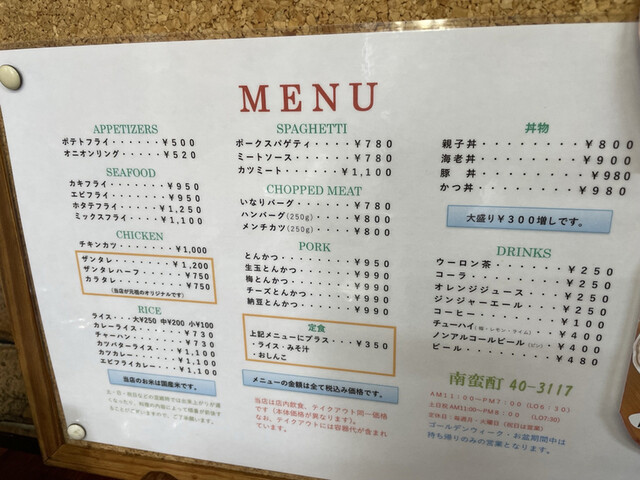 MENU
APPETIZERS
ポテトフライ・・・・・・¥500
オニオンリング・・・・・¥520
SEAFOOD
カキフライ・・・・・・・¥950
エビフライ・・・・・・・¥950
ホタテフライ・・・・・¥1,250
ミックスフライ・・・・¥1,100
CHICKEN
チキンカツ・・・・・・¥1,000
ザンタレ・・・・・・・¥1,200
ザンタレハーフ・・・・・¥750
カラタレ・・・・・・・・¥750
(当店が元祖のオリジナルです)
RICE
ライス・・・大¥250 中¥200 小¥100
カレーライス・・・・・・¥730
チャーハン・・・・・・・¥730
カツバターライス・・・¥1,100
カツカレー・・・・・・¥1,100
エビフライカレー・・・¥1,100
当店のお米は国産米です。
SPAGHETTI
ポークスパゲティ・・・・¥780
ミートソース・・・・・・¥780
カツミート・・・・・・¥1,100
CHOPPED MEAT
いなりバーグ・・・・・・¥780
ハンバーグ(250g)・・・・・¥800
メンチカツ(250g)・・・・・¥800
PORK
とんかつ・・・・・・・・¥950
生玉とんかつ・・・・・・¥990
梅とんかつ・・・・・・・¥990
チーズとんかつ・・・・・¥990
納豆とんかつ・・・・・・¥990
定食
上記メニューにプラス・・・¥350
・ライス・みそ汁
・おしんこ
メニューの金額は全て税込み価格です。
当店は店内飲食、テイクアウト同一価格
です（本体価格が異なります）。
なお、テイクアウトには容器代が含まれ
ています。
丼物
親子丼・・・・・・・・¥800
海老丼・・・・・・・・¥900
豚 丼・・・・・・・・¥980
かつ丼・・・・・・・・¥980
大盛り¥300増しです。
DRINKS
ウーロン茶・・・・・・・¥250
コーラ・・・・・・・・・¥250
オレンジジュース・・・・¥250
ジンジャーエール・・・・¥250
コーヒー・・・・・・・・¥100
チューハイ(梅・レモン・ライム)・・・¥400
ノンアルコールビール(ビン)・¥400
ビール・・・・・・・・・¥480
南蛮酊 40-3117
AM11:00~PM7:00 (LO6:30)
土日祝AM11:00~PM8:00 (LO7:30)
定休日：毎週月・火曜日（祝日は営業）
ゴールデンウィーク・お盆期間中は
持ち帰りのみの営業となります。